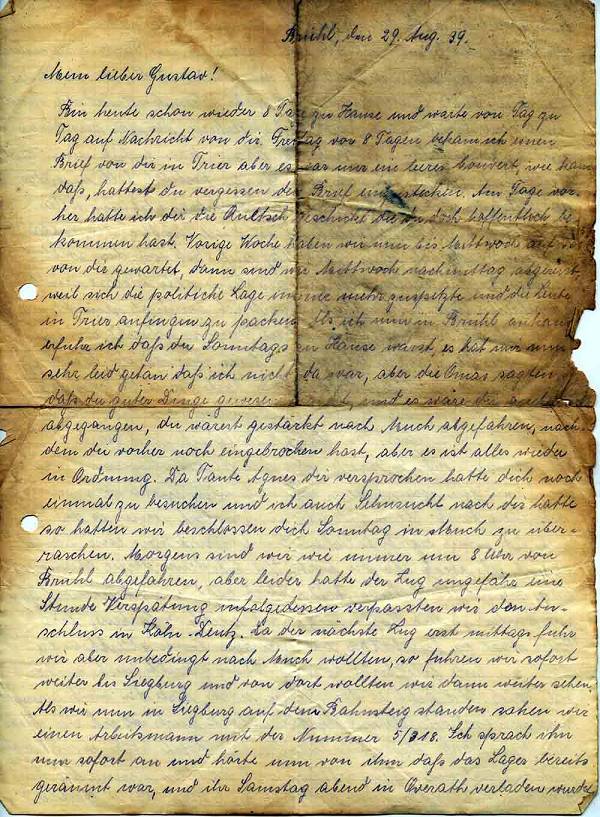 Brühl, den 29. Aug. 39.
Mein lieber Gustav!
Bin heute schon wieder 8 Tage zu Hause und warte von Tag zu
Tag auf Nachricht von dir. Freitag vor 8 Tagen bekam ich einen
Brief von dir in Trier aber es war nur ein leeres Kouvert, wie kam
daß, hattest du vergessen den Brief einzustecken. Am Tage vor-
her hatte ich dir die geschickt die du doch hoffentlich be-
kommen hast. Vorige Woche haben wir nun bis Mittwoch auf
von dir gewartet, dann sind wir Mittwoch nachmittag abgereist
weil sich die politische Lage immer mehr zuspitzte und die Leute
in Trier anfingen zu packen. Als ich nun in Brühl ankam
erfuhr ich daß du Sonntags zu Hause warst, es hat mir nun
sehr leid getan daß ich nicht da war, aber die Omas sagten
daß du guter Dinge gewesen und es wäre dir
abgegangen, du wärest gestärkt nach Much abgefahren, nach-
dem du vorher noch eingebrochen hast, aber es ist alles wieder
in Ordnung. Da Tante Agnes dir versprochen hatte dich noch
einmal zu besuchen und ich auch Sehnsucht nach dir hatte
so hatten wir beschlossen dich Sonntag in Much zu über-
raschen. Morgens sind wir wie immer um 8 Uhr von
Brühl abgefahren, aber leider hatte der Zug ungefähr eine
Stunde Verspätung infolgedessen verpassten wir den An-
schluss in Köln-Deutz. Da der nächste Zug erst mittags fuhr
wir aber unbedingt nach Much wollten, so fuhren wir sofort
weiter bis Siegburg und von dort wollten wir dann weiter sehen.
Als wir nun in Siegburg auf dem Bahnsteig standen sahen wir
einen Arbeitsmann mit der Nummer 5/218. Ich sprach ihn
nun sofort an und hörte nun von ihm daß das Lager bereits
geräumt war, und ihr Samstag abend in Overath verladen wurdet